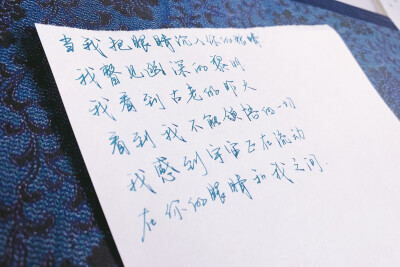 当我把眼睛沉入你的眼睛
我瞥见幽深的黎明
我看到古老的昨天
看到我不能领悟的一切
我感到宇宙正在流动
在你的眼睛和我之间.